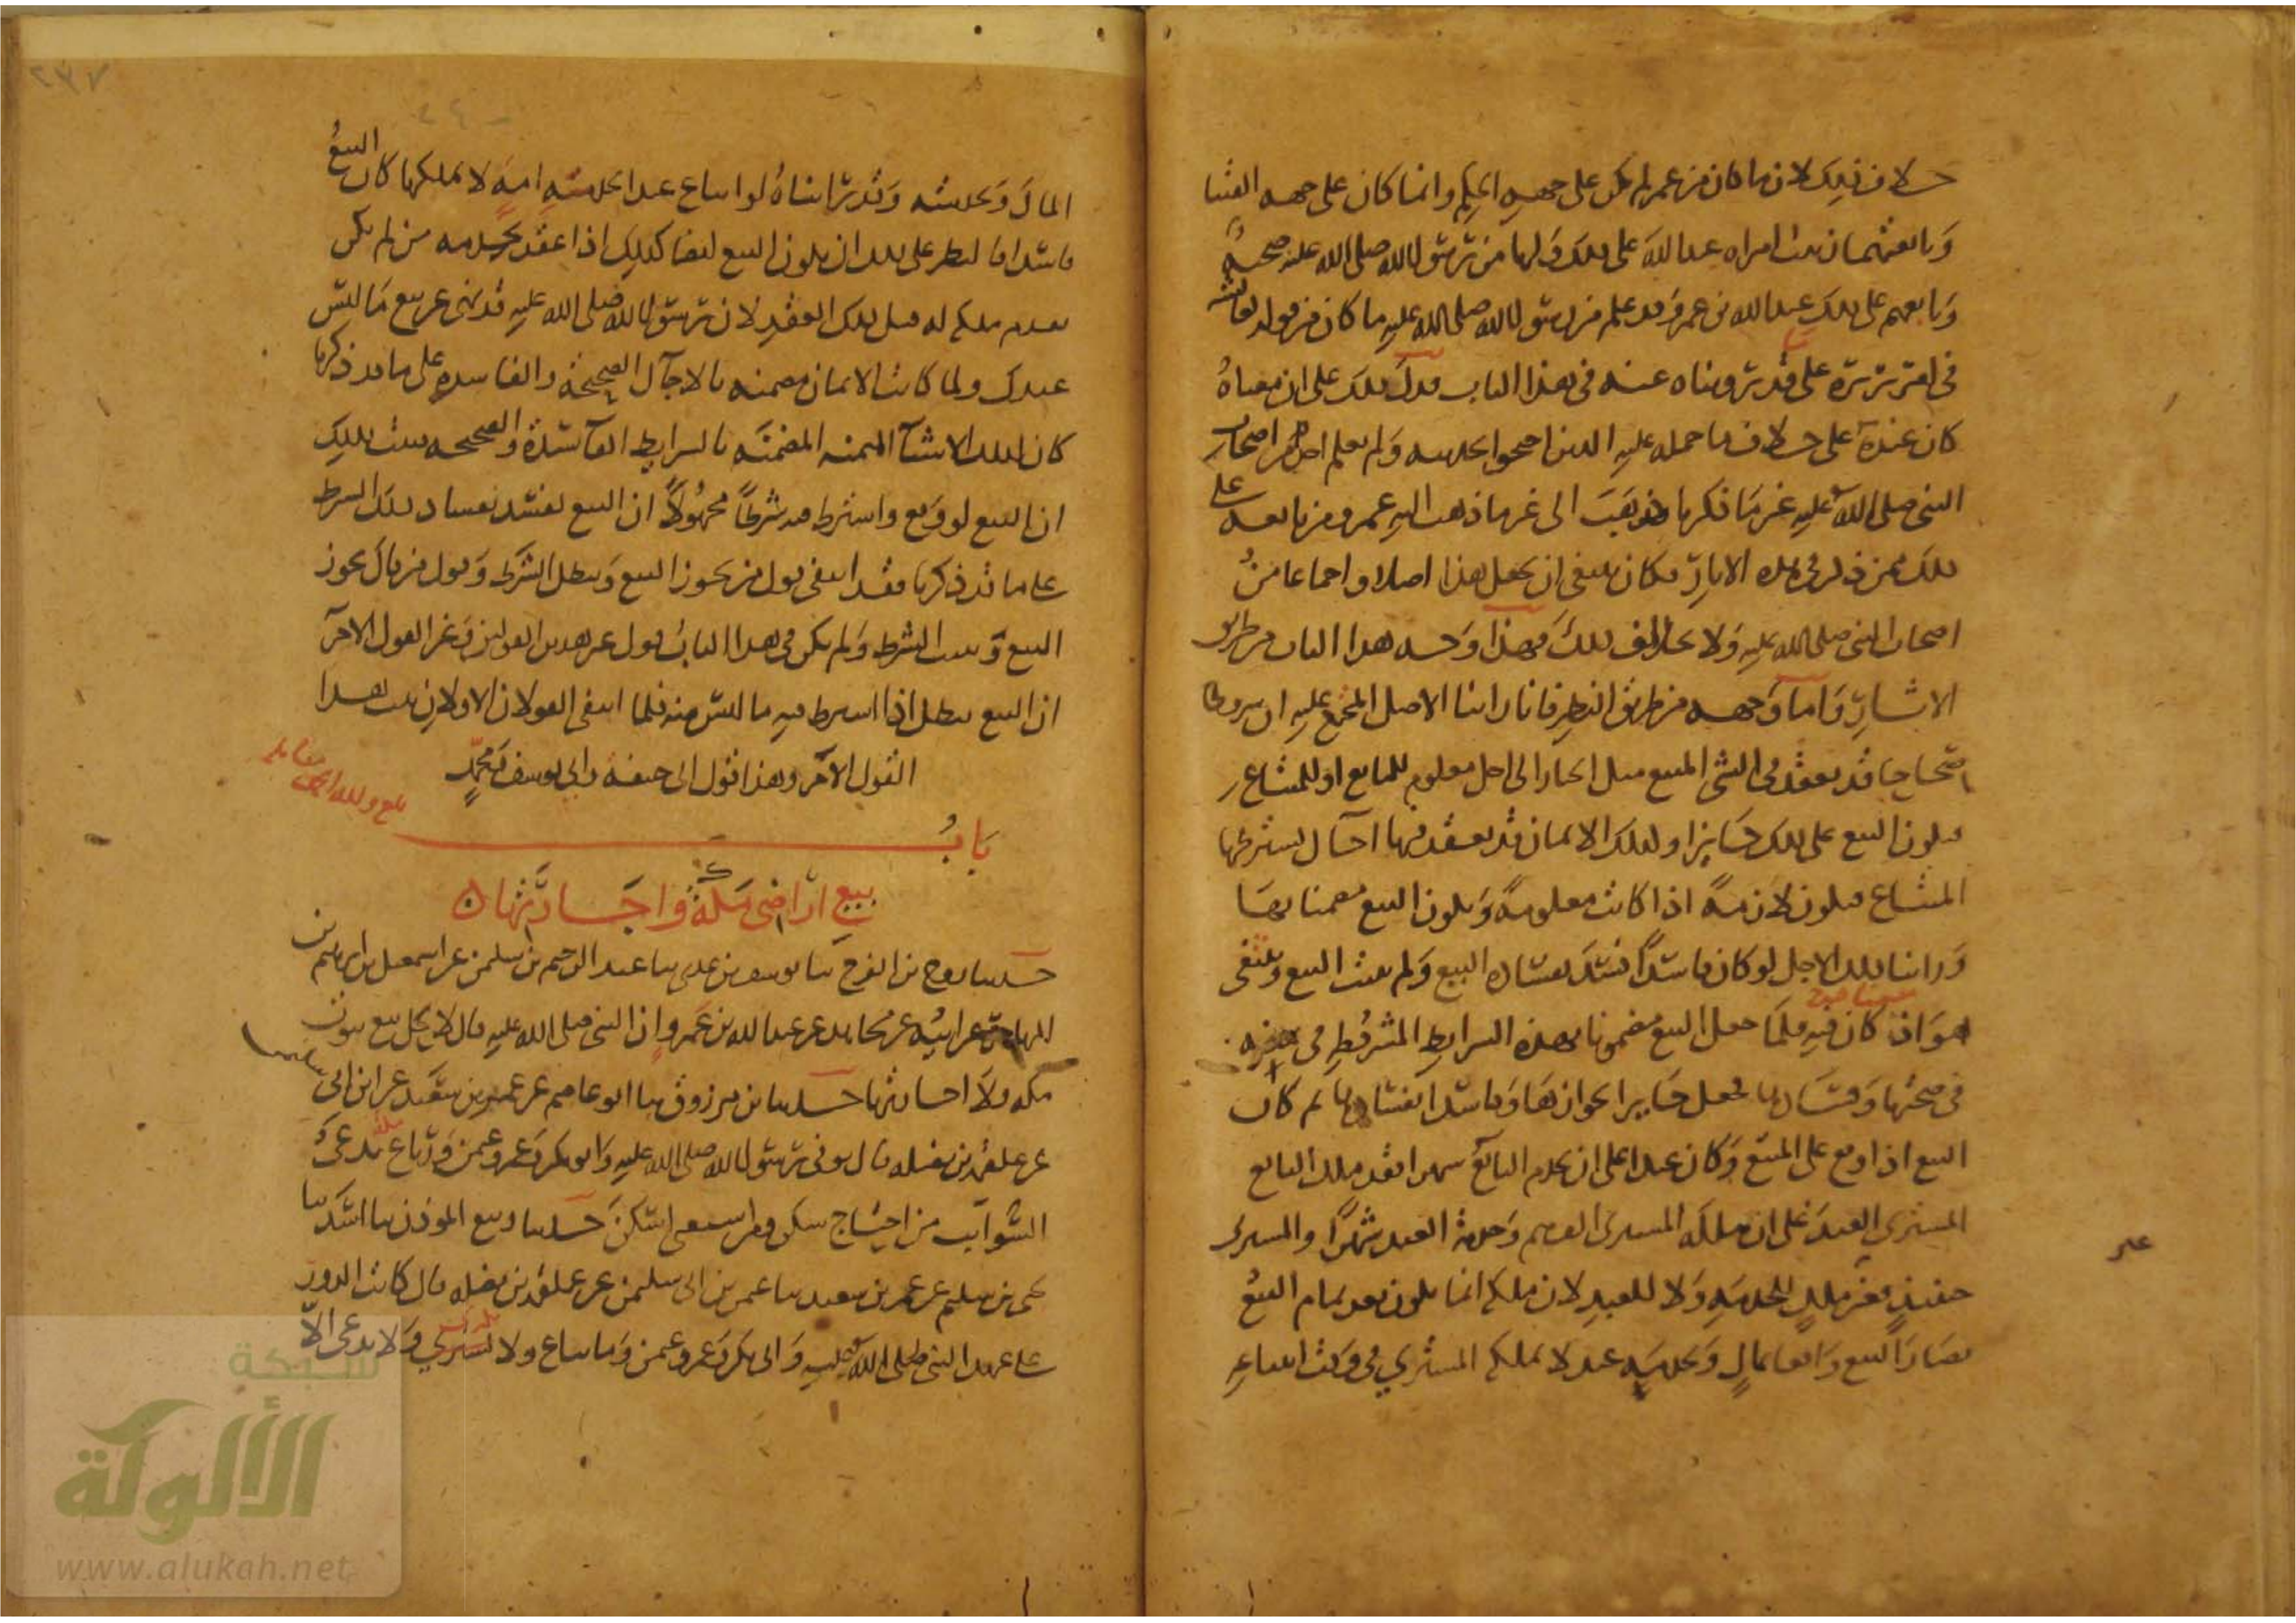 خلاف ذلك لان ما كان من عمر لم يكن على جهه الحكم وانما كان على جهه الفتيا
وتابعتهما زينب امراه عبد الله على ذلك ولها من رسول الله صلى الله عليه صحبه
وتابعهم على ذلك عبد الله بن عمر وقد علم من رسول الله صلى الله عليه ما كان من قوله لعايشه
في امر بريره على ما قد رويناه عنه في هذا الباب فدل ذلك على ان معناه
كان عنده على خلاف ما حمله عليه الذين احتجوا بحديثه ولم نعلم احدا من اصحاب
النبي صلى الله عليه غير ما ذكرنا ذهب الى غير ما ذهب اليه عمر ومن تابعه على
ذلك ممن ذكر في هذه الاثار فكان ينبغي ان يجعل هذا اصلا واجماعا من
اصحاب النبي صلى الله عليه ولا يخالف ذلك فهذا وجه هذا الباب من طريق
الاثار واما وجهه من طريق النظر فانا راينا الاصل المجتمع عليه ان شروطا
صحاحا قد تعقد في الشي المبيع مثل الخيار الى اجل معلوم للبايع او للمبتاع
فيكون البيع على ذلك جايزا وكذلك الاثمان قد تعقد فيها اجال يشترطها
المبتاع فتكون لازمه اذا كانت معلومه ويكون البيع مضمنا بها
وراينا ذلك الاجل لو كان فاسدا فسد بفساده البيع ولم يثبت البيع وينتفي
هو اذا كان فيه فلما جعل البيع مضمونا بهذه الشرايط المشروطه في ثمنه
في صحتها وفسادها فجعل جايزا بجوازها وفاسدا بفسادها ثم كان
البيع اذا وقع على المبيع وكان عبدا على ان يخدم البايع شهرا فقد ملك البايع
المشتري العبد على ان ملكه المشتري الف درهم وخدمه العبد شهرا والمشتري
حينئذ غير مالك للخدمه ولا للعبد لان ملكه انما يكون بعد تمام البيع
فصار البيع واقعا بمال وبخدمه عبد لا يملكه المشتري في وقت ابتياعه
المال وبخدمته وقد راينا انه لو ابتاع عبدا بخدمه امه لا يملكها كان البيع
فاسدا فالنظر على ذلك ان يكون البيع ايضا كذلك اذا عقد بخدمه من لم يكن
تقدم ملكه له قبل ذلك العقد لان رسول الله صلى الله عليه قد نهى عن بيع ما ليس
عندك ولما كانت الاثمان مضمنه بالاجال الصحيحه والفاسده على ما قد ذكرنا
كان كذلك الاشيا المثمنه المضمنه بالشرايط الفاسده والصحيحه فثبت بذلك
ان البيع لو وقع واشترط فيه شرطا مجهولا ان البيع يفسد بفساد ذلك الشرط
على ما قد ذكرنا فقد انتفى قول من يجوز البيع ويبطل الشرط وقول من قال يجوز
البيع ويثبت الشرط ولم يكن في هذا الباب قول غير هذين القولين وغير القول الاخر
ان البيع يبطل اذا اشترط فيه ما ليس منه فلما انتفى القولان الاولان ثبت هذا
القول الاخر وهذا قول ابي حنيفه وابي يوسف ومحمد
باب
بيع اراضي مكه واجارتها
حدثنا روح بن الفرج ثنا يوسف بن عدي ثنا عبد الرحيم بن سليمن عن اسمعيل بن ابرهيم بن
المهاجر عن ابيه عن مجاهد عن عبد الله بن عمرو ان النبي صلى الله عليه قال لا يحل بيع بيوت
مكه ولا اجارتها حدثنا ابن مرزوق ثنا ابو عاصم عن عمر بن سعيد عن ابن ابي
عن علقمه بن نضله قال توفي رسول الله صلى الله عليه وابو بكر وعمر وعثمن ورباع مكه تدعى
السوايب من احتاج سكن ومن استغنى اسكن حدثنا ربيع الموذن ثنا اسد ثنا
يحيى بن سليم عن عمر بن سعيد ثنا عثمن بن ابي سليمن عن علقمه بن نضله قال كانت الدور
على عهد النبي صلى الله عليه وابي بكر وعمر وعثمن وما تباع ولا تكرى ولا تدعى الا
شبكة
الألوكة
www.alukah.net